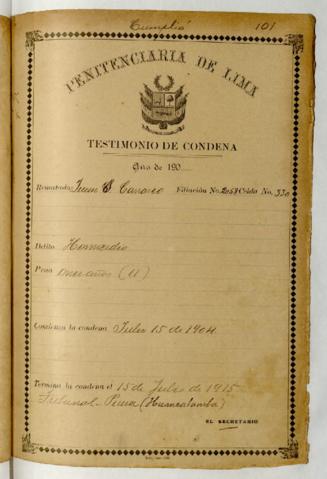 Cumplió 101
PENITENCIARIA DE LIMA
TESTIMONIO DE CONDENA
Año de 190
Rematado Juan S Carrasco Filiación No. Celda No. 330
Delito Homicidio
Pena once años (11)
Comienza la condena Julio 15 de 1904
Termina la condena el 15 de Julio de 1915
Tribunal - Piura (Huancabamba)
EL SECRETARIO